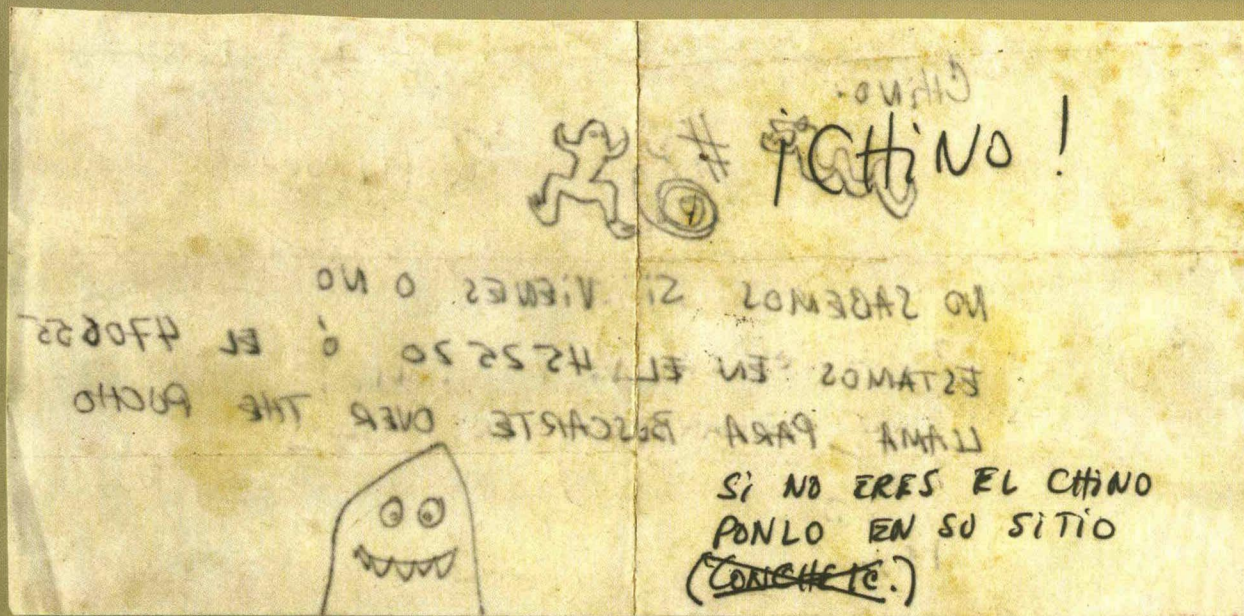 CHiNO.
¡CHiNO!
NO SABEMOS Si ViENES O NO
ESTAMOS EN EL 452520 ó EL 470655
LLAMA PARA BUSCARTE OVER THE PUCHO
Si NO ERES EL CHiNO
PONLO EN SU SiTiO